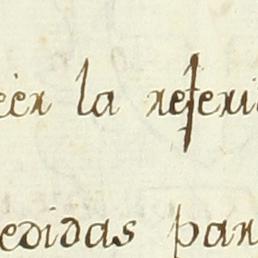 eér la referi
edidas par